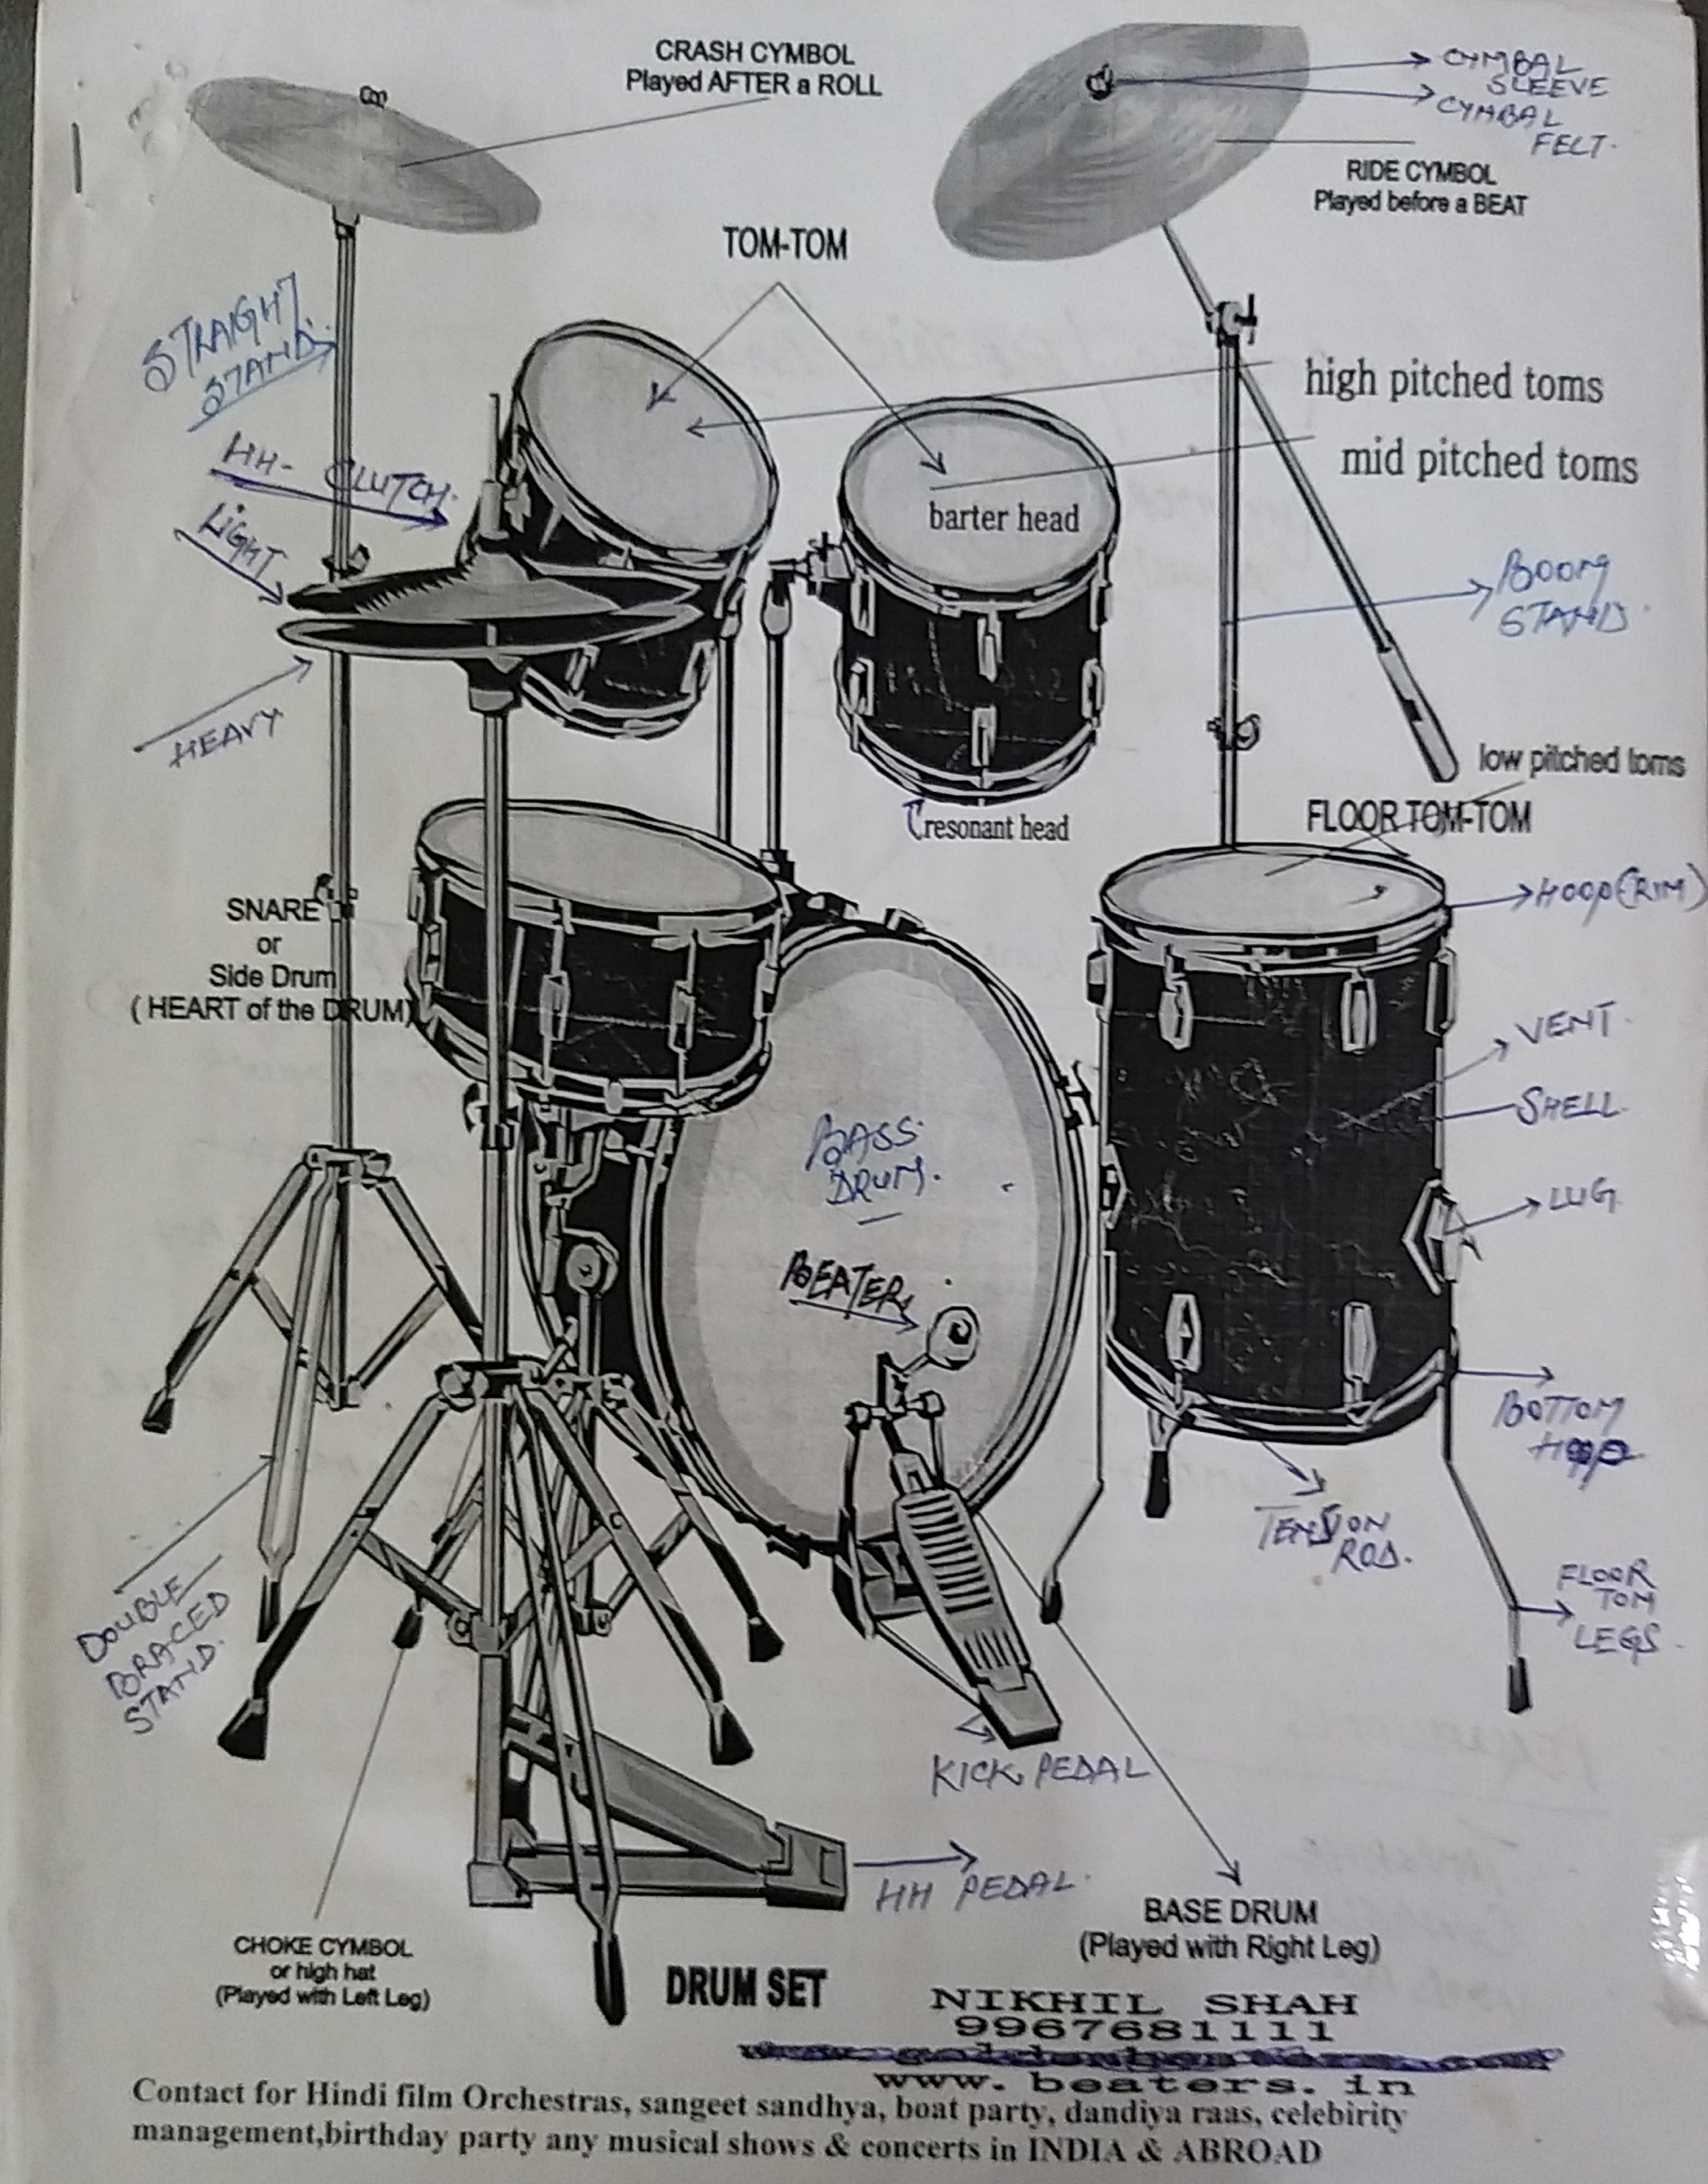 CRASH CYMBOL
Played AFTER a ROLL
CYMBAL
SLEEVE
CYMBAL
FELT.
RIDE CYMBOL
Played before a BEAT
TOM-TOM
STRAIGHT
STAND.
high pitched toms
mid pitched toms
HH- CLUTCH.
LIGHT
barter head
BOOM
STAND.
HEAVY
low pitched toms
FLOOR TOM-TOM
resonant head
HOOP (RIM)
SNARE
or
Side Drum
( HEART of the DRUM)
VENT.
SHELL.
BASS
DRUM.
LUG.
BEATER
BOTTOM
HOOP
TENSION
ROD.
FLOOR
TOM
LEGS.
DOUBLE
BRACED
STAND.
KICK PEDAL
HH PEDAL.
BASE DRUM
(Played with Right Leg)
CHOKE CYMBOL
or high hat
(Played with Left Leg)
DRUM SET
NIKHIL SHAH
9967681111
www. beaters. in
Contact for Hindi film Orchestras, sangeet sandhya, boat party, dandiya raas, celebirity
management,birthday party any musical shows & concerts in INDIA & ABROAD